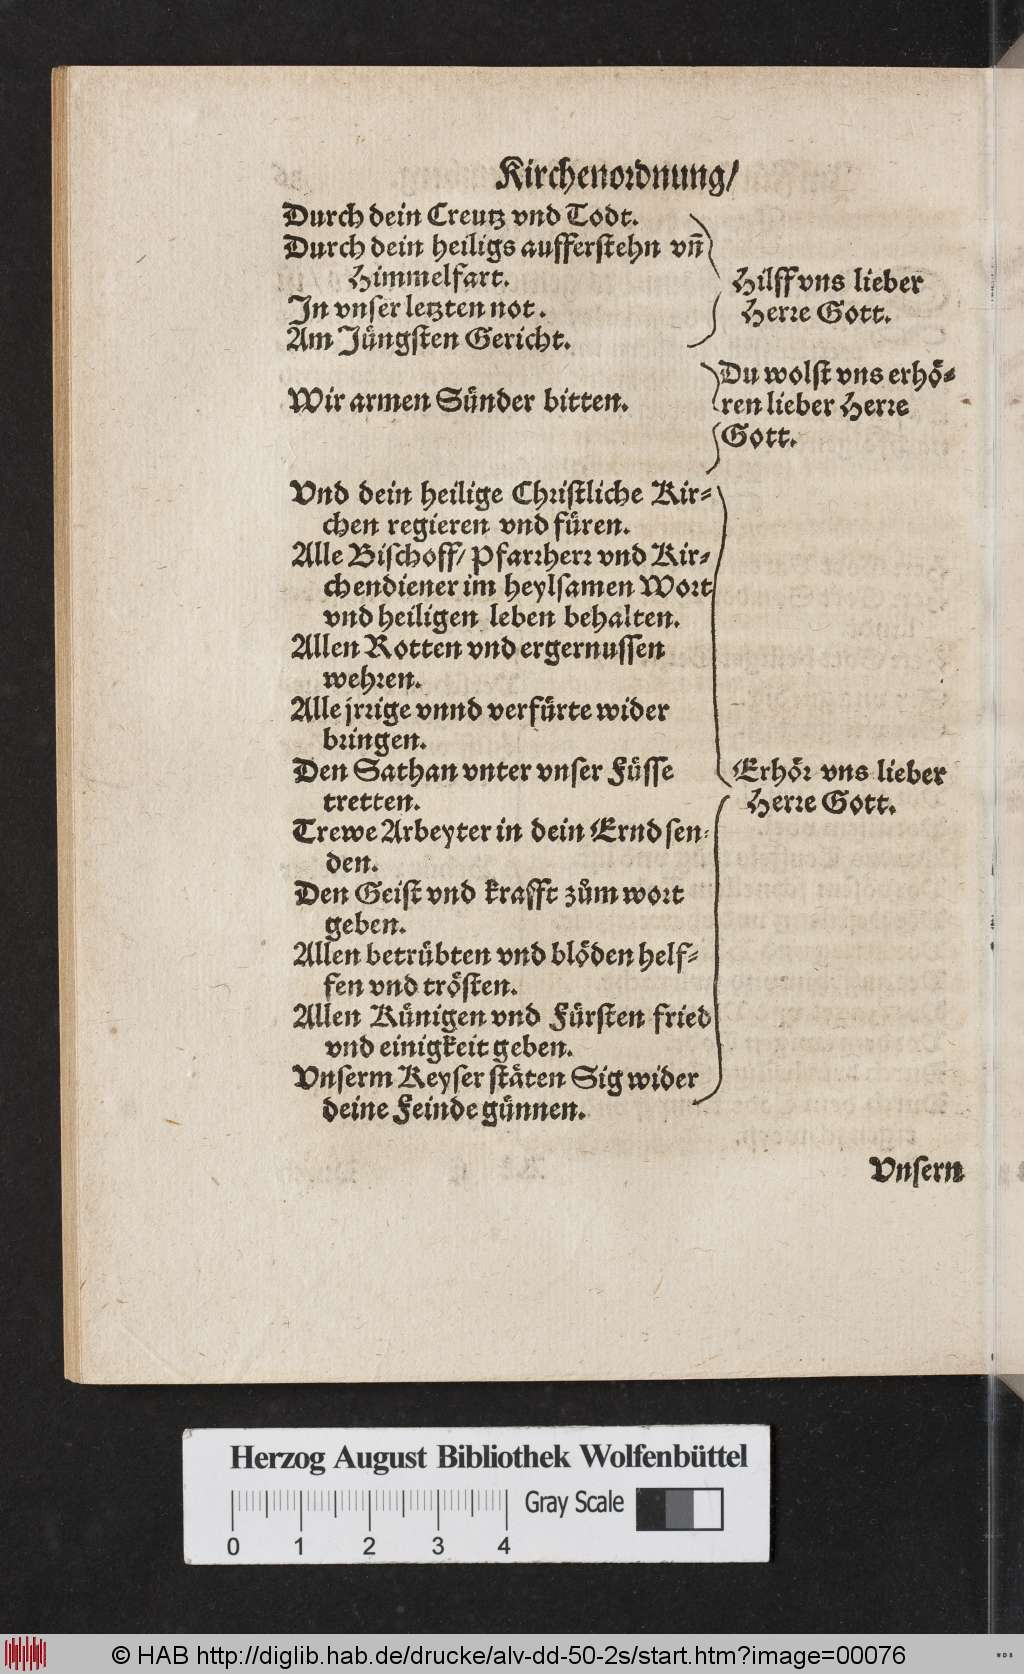 Kirchenordnung/
Durch dein Creutz vnd Todt.
Durch dein heiligs aufferstehn vn̄
Himmelfart.
In vnser letzten not.
Am Jüngsten Gericht.
Hilff vns lieber
Herre Gott.
Wir armen Sünder bitten.
Du wolst vns erhö⸗
ren lieber Herre
Gott.
Vnd dein heilige Christliche Kir⸗
chen regieren vnd füren.
Alle Bischoff/ Pfarrherr vnd Kir⸗
chendiener im heylsamen Wort
vnd heiligen leben behalten.
Allen Rotten vnd ergernussen
wehren.
Alle jrrige vnnd verfürte wider
bringen.
Den Sathan vnter vnser Füsse
tretten.
Trewe Arbeyter in dein Ernd sen⸗
den.
Den Geist vnd krafft zům wort
geben.
Allen betrübten vnd blöden helf⸗
fen vnd trösten.
Allen Künigen vnd Fürsten fried
vnd einigkeit geben.
Vnserm Keyser stäten Sig wider
deine Feinde günnen.
Erhör vns lieber
Herre Gott.
Vnsern
Herzog August Bibliothek Wolfenbüttel
Gray Scale
0 1 2 3 4
© HAB http://diglib.hab.de/drucke/alv-dd-50-2s/start.htm?image=00076